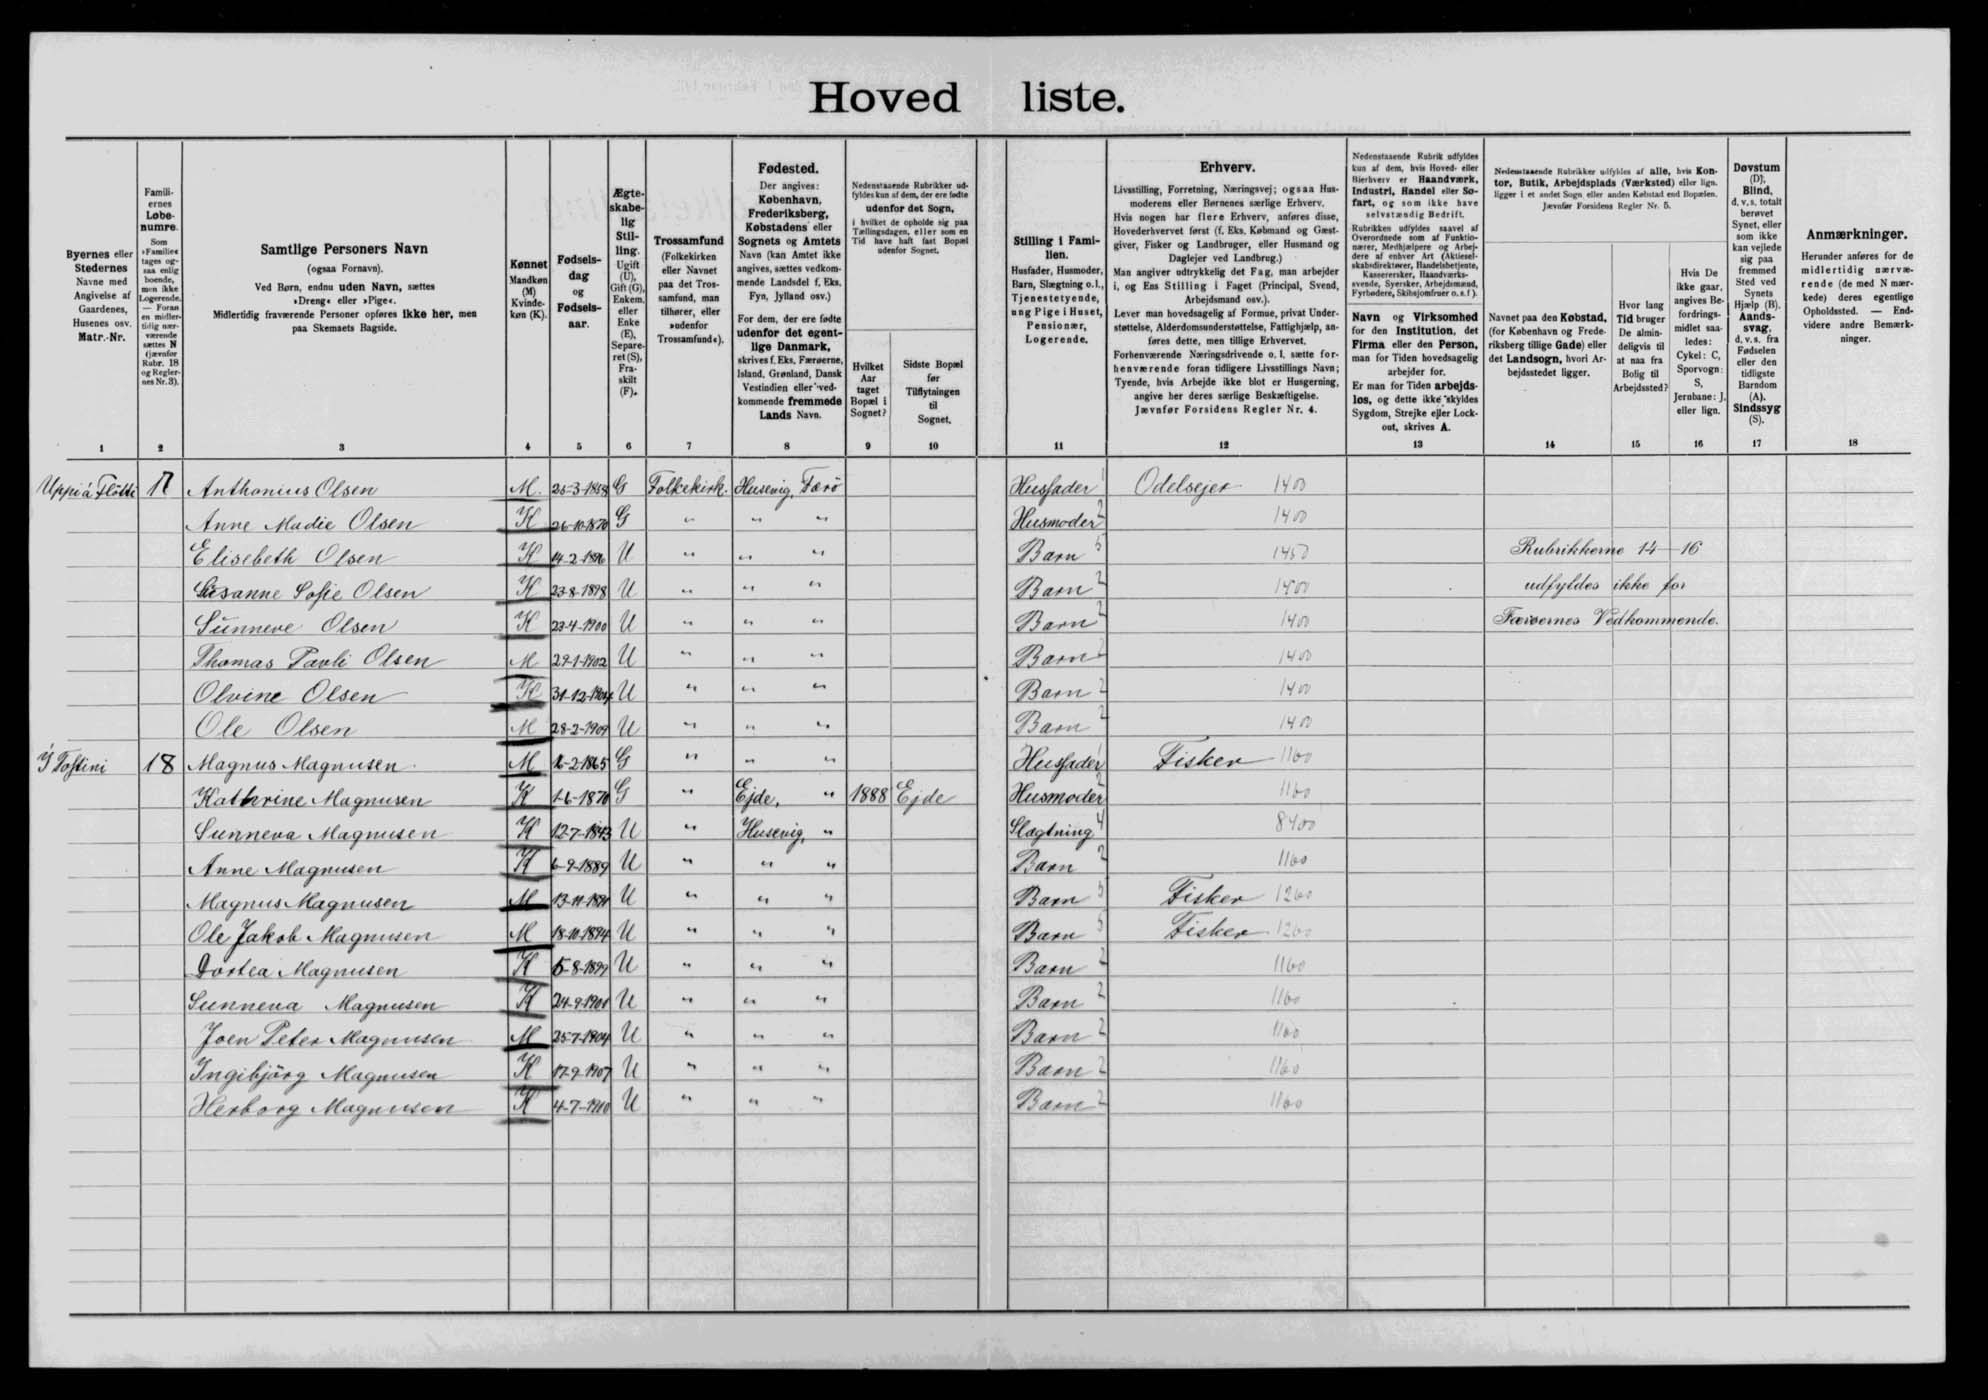 Hoved liste.
Byernes eller Stedernes Navne med Angivelse af Gaardenes, Husenes osv. Matr.-Nr.
Famili-
ernes
Løbe-
numre.
Som »Familie« tages og-
saa enlig boende, men ikke Logerende. — Foran en midler-
tidig nær-
værende sættes N (jævnfør Rubr. 18 og Regler-
nes Nr. 3).
Samtlige Personers Navn
(ogsaa Fornavn).
Ved Børn, endnu uden Navn, sættes
»Dreng« eller »Pige«.
Midlertidig fraværende Personer opføres ikke her, men
paa Skemaets Bagside.
Kønnet
Mandkøn
(M)
Kvinde-
køn (K).
Fødsels-
dag
og
Fødsels-
aar.
Ægte-
skabe-
lig
Stil-
ling.
Ugift
(U),
Gift (G),
Enkem.
eller
Enke
(E),
Separe-
ret (S),
Fra-
skilt
(F).
Trossamfund
(Folkekirken
eller Navnet
paa det Tros-
samfund, man
tilhører, eller
»udenfor
Trossamfund«).
Fødested.
Der angives:
København,
Frederiksberg,
Købstadens eller
Sognets og Amtets
Navn (kan Amtet ikke
angives, sættes vedkom-
mende Landsdel f. Eks.
Fyn, Jylland osv.)
For dem, der ere fødte
udenfor det egent-
lige Danmark,
skrives f. Eks. Færøerne,
Island, Grønland, Dansk
Vestindien eller ved-
kommende fremmede
Lands Navn.
Nedenstaaende Rubrikker ud-
fyldes kun af dem, der ere fødte
udenfor det Sogn,
i hvilket de opholde sig paa
Tællingsdagen, eller som en
Tid have haft fast Bopæl
udenfor Sognet.
Hvilket
Aar
taget
Bopæl i
Sognet?
Sidste Bopæl
før
Tilflytningen
til
Sognet.
Stilling i Fami-
lien.
Husfader, Husmoder,
Barn, Slægtning o.l.,
Tjenestetyende,
ung Pige i Huset,
Pensionær,
Logerende.
Erhverv.
Livsstilling, Forretning, Næringsvej; ogsaa Hus-
moderens eller Børnenes særlige Erhverv.
Hvis nogen har flere Erhverv, anføres disse,
Hovederhvervet først (f. Eks. Købmand og Gæst-
giver, Fisker og Landbruger, eller Husmand og
Daglejer ved Landbrug.)
Man angiver udtrykkelig det Fag, man arbejder
i, og Ens Stilling i Faget (Principal, Svend,
Arbejdsmand osv.).
Lever man hovedsagelig af Formue, privat Under-
støttelse, Alderdomsunderstøttelse, Fattighjælp, an-
føres dette, men tillige Erhvervet.
Forhenværende Næringsdrivende o. l. sætte for-
henværende foran tidligere Livsstillings Navn;
Tyende, hvis Arbejde ikke blot er Husgerning,
angive her deres særlige Beskæftigelse.
Jævnfør Forsidens Regler Nr. 4.
Nedenstaaende Rubrik udfyldes
kun af dem, hvis Hoved- eller
Bierhverv er Haandværk,
Industri, Handel eller Sø-
fart, og som ikke have
selvstændig Bedrift.
Rubrikken udfyldes saavel af
Overordnede som af Funktio-
nærer, Medhjælpere og Arbej-
dere af enhver Art (Aktiesel-
skabsdirektører, Handelsbetjente,
Kasserersker, Haandværks-
svende, Syersker, Arbejdsmænd,
Fyrbødere, Skibsjomfruer o. s. f.).
Navn og Virksomhed
for den Institution, det
Firma eller den Person,
man for Tiden hovedsagelig
arbejder for.
Er man for Tiden arbejds-
løs, og dette ikke skyldes
Sygdom, Strejke eller Lock-
out, skrives A.
Nedenstaaende Rubrikker udfyldes af alle, hvis Kon-
tor, Butik, Arbejdsplads (Værksted) eller lign.
ligger i et andet Sogn eller anden Købstad end Bopælen.
Jævnfør Forsidens Regler Nr. 5.
Navnet paa den Købstad,
(for København og Frede-
riksberg tillige Gade) eller
det Landsogn, hvori Ar-
bejdsstedet ligger.
Hvor lang
Tid bruger
De almin-
deligvis til
at naa fra
Bolig til
Arbejdssted?
Hvis De
ikke gaar,
angives Be-
fordrings-
midlet saa-
ledes:
Cykel: C,
Sporvogn:
S,
Jernbane: J,
eller lign.
Døvstum
(D),
Blind,
d. v. s. totalt
berøvet
Synet, eller
som ikke
kan vejlede
sig paa
fremmed
Sted ved
Synets
Hjælp (B).
Aands-
svag,
d. v. s. fra
Fødselen
eller den
tidligste
Barndom
(A).
Sindssyg
(S).
Anmærkninger.
Herunder anføres for de
midlertidig nærvæ-
rende (de med N mær-
kede) deres egentlige
Opholdssted. — End-
videre andre Bemærk-
ninger.
1 2 3 4 5 6 7 8 9 10 11 12 13 14 15 16 17 18
Uppi á Fløtti 17 Anthonius Olsen M. 25-3-1858 G Folkekirk. Husevig, Færø Husfader 1 Odelsejer 1400
Anne Madie Olsen K 26-10-1870 G " " " Husmoder 2 1400
Elisebeth Olsen K 14-2-1896 U " " " Barn 5 1450 Rubrikkerne 14-16
Susanne Sofie Olsen K 23-8-1898 U " " " Barn 2 1400 udfyldes ikke for
Sunneve Olsen K 23-4-1900 U " " " Barn 2 1400 Færøernes Vedkommende.
Thomas Pauli Olsen M 29-1-1902 U " " " Barn 2 1400
Olvine Olsen K 31-12-1904 U " " " Barn 2 1400
Ole Olsen M 28-2-1909 U " " " Barn 2 1400
Í Toftini 18 Magnus Magnusen M 16-2-1865 G " " " Husfader 1 Fisker 1160
Kathrine Magnusen K 1-6-1870 G " Ejde, " 1888 Ejde Husmoder 2 1160
Sunneva Magnusen K 12-7-1843 U " Husevig, " Slægtning 4 8400
Anne Magnusen K 6-9-1889 U " " " Barn 2 1160
Magnus Magnusen M 13-11-1891 U " " " Barn 5 Fisker 1260
Ole Jakob Magnusen M 18-10-1894 U " " " Barn 5 Fisker 1260
Dortea Magnusen K 5-8-1899 U " " " Barn 2 1160
Sunneva Magnusen K 24-9-1901 U " " " Barn 2 1160
Joen Peter Magnusen M 25-7-1904 U " " " Barn 2 1160
Ingibjörg Magnusen K 17-9-1907 U " " " Barn 2 1160
Herborg Magnusen K 4-7-1910 U " " " Barn 2 1160